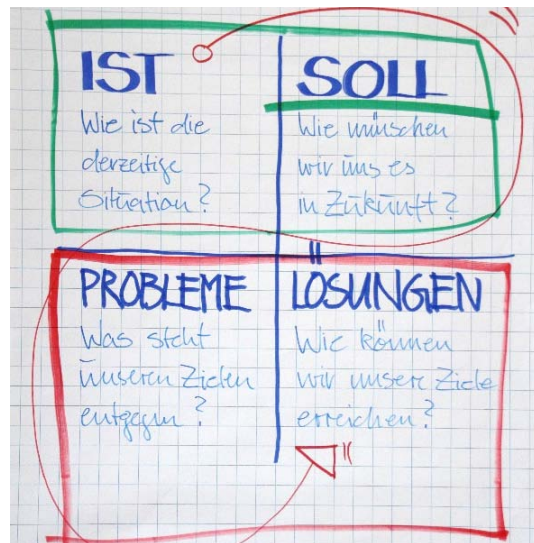 IST
Wie ist die
derzeitige
Situation?
SOLL
Wie wünschen
wir uns es
in Zukunft?
PROBLEME
Was steht
unseren Zielen
entgegen?
LÖSUNGEN
Wie können
wir unsere Ziele
erreichen?